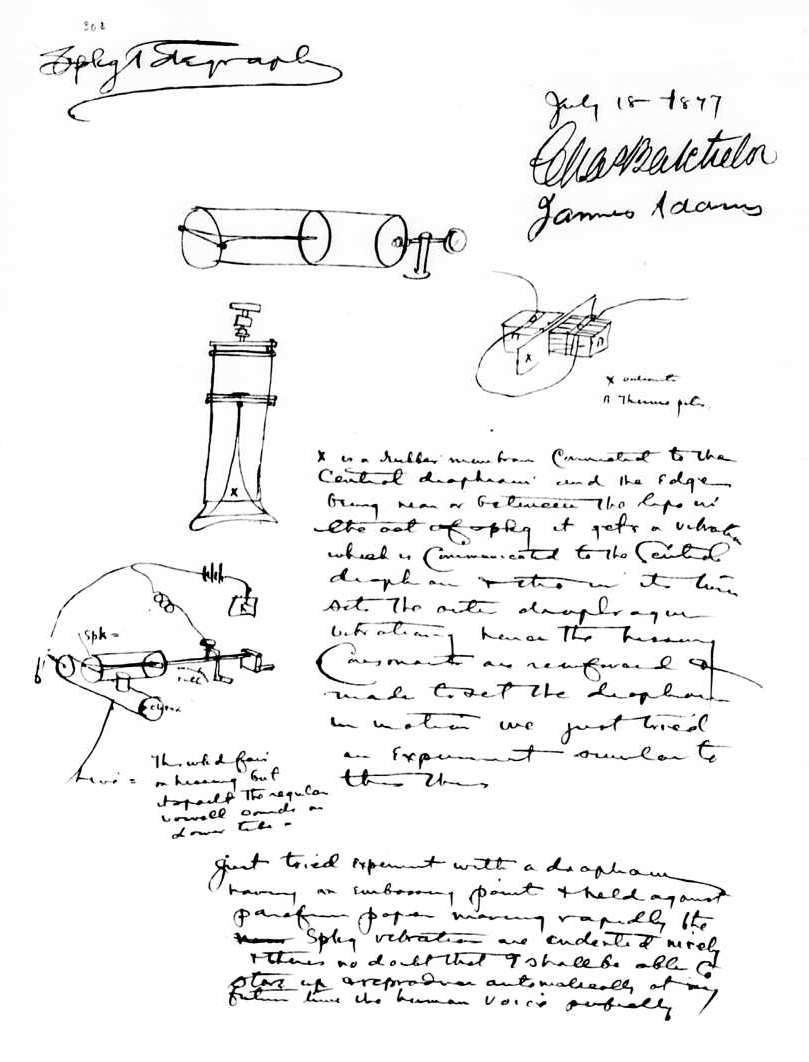 Spkg Telegraph
July 18 1877
Chas Batchelor
James Adams
n
x
n
x
n Thermo pile
x
x is a rubber membrane Connected to the
Central diaphram and the Edge
being near or between the lips in
the act of spkg it gets a vibration
which is Communicated to the Central
diaphram & this in its turn
sets the outer diaphragm
vibrating hence the hissing
Consonants are reinforced &
made to set the diaphram
in motion we just tried
an Experiment similar to
this thus
Spk =
This worked fair
on hissing but
spoilt the regular
vowell sounds in
lower tube =
Just tried experiment with a diaphram
having an embossing point & held against
parafin paper moving rapidly the
Spkg vibrations are indented nicely
& theres no doubt that I shall be able to
store up & reproduce automatically at any
future time the human voice perfectly